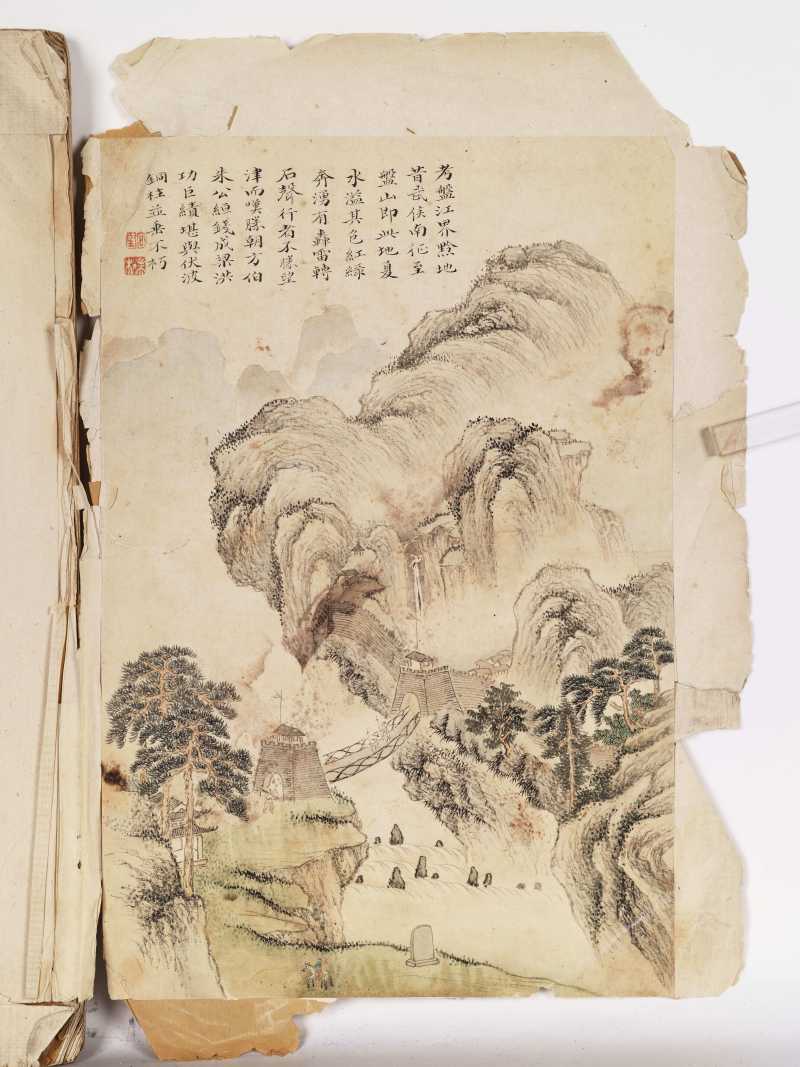 考盤江界黔地
昔武侯南征至
盤山即此地夏
水溢其色紅綠
奔湧有轟雷轉
石聲行者不勝望
津而嘆勝朝方伯
朱公絙錢成梁洪
功巨績堪與伏波
銅柱並垂不朽